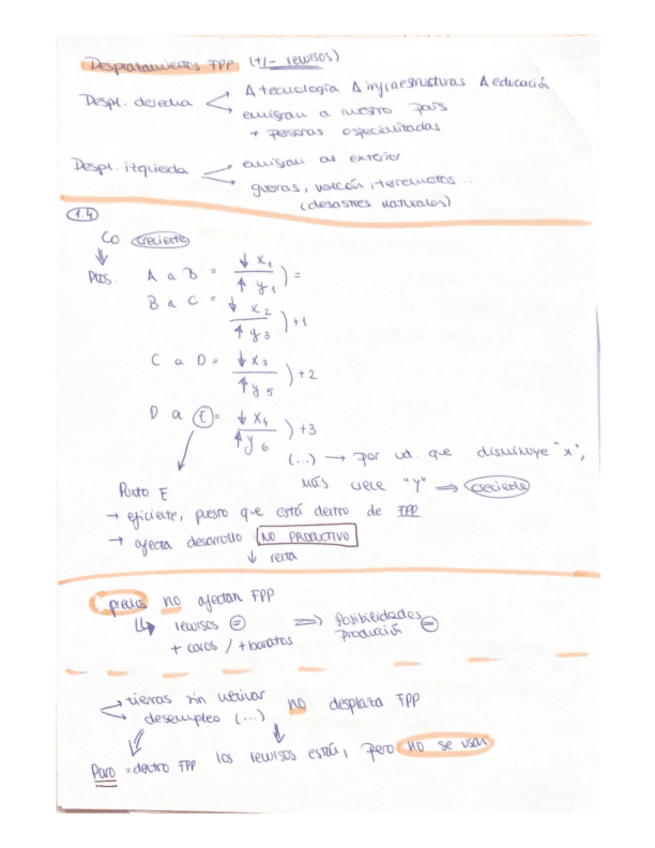 Desplazamientos FPP (+/- recursos)
Despl. derecha → Δ tecnología Δ infraestructuras Δ educación
→ emigran a nuestro país
+ personas especializadas
Despl. izquierda → emigran al exterior
→ guerras, volcán, terremotos...
(desastres naturales)
1.4
CO creciente
Ptos. A a B = ↓ x1 / ↑ y1 ) =
B a C = ↓ x2 / ↑ y3 ) +1
C a D = ↓ x3 / ↑ y5 ) +2
D a E = ↓ x4 / ↑ y6 ) +3
(...) → por ud. que disminuye "x",
más crece "y" ⇒ creciente
Punto E
→ eficiente, puesto que está dentro de FPP
→ afecta desarrollo NO PRODUCTIVO
↓ recta
precios no afectan FPP
↳ recursos = ⇒ Posibilidades
producción =
+ caros / + baratos
→ tierras sin cultivar no desplaza FPP
→ desempleo (...)
Paro = dentro FPP los recursos están, pero no se usan